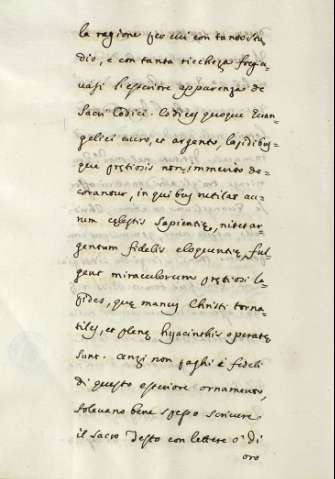 la ragione per cui con tanto stu
dio, e con tanta ricchezza fregia
vasi l'esteriore apparenza de
Sacri Codici. Codices quoque Evan=
gelici auro, et argento, lapidibus=
que pretiosis non immerito de=
corantur, in quibus rutilat au=
rum cęlestis sapientię, nitet ar=
gentum fidelis eloquentię, ful=
gent miraculorum prętiosi la=
pides, quę manus Christi torna=
tiles, et plenę hyacinthis operatę
sunt. Anzi non paghi i fedeli
di questo esteriore ornamento,
solevano bene spesso scrivere
il Sacro Testo con lettere o' di
oro